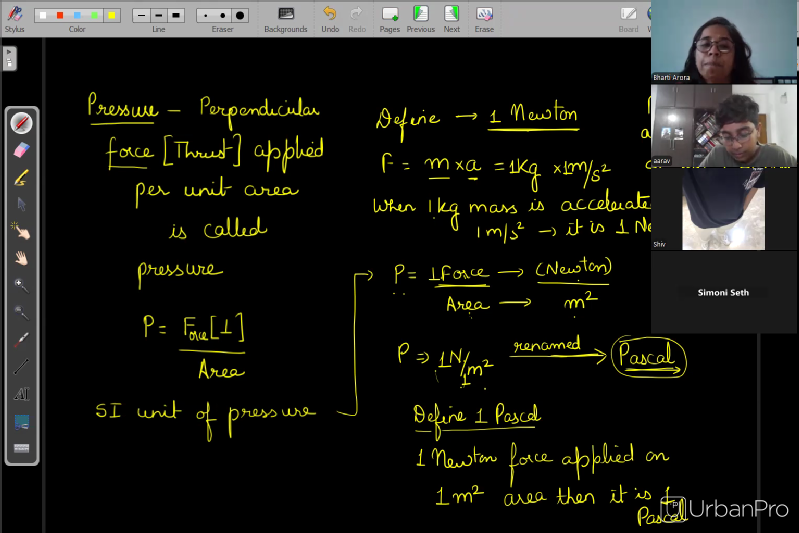 Stylus
Color
Line
Eraser
Backgrounds
Undo
Redo
Pages
Previous
Next
Erase
Board
Pressure – Perpendicular
force [Thrust] applied
per unit area
is called
pressure
P = Force [⊥]
Area
SI unit of pressure
Define → 1 Newton
F = m × a = 1Kg × 1m/s²
When 1kg mass is accelerate
1m/s² → it is 1 Ne
P = 1Force → (Newton)
Area → m²
P ⇒ 1N/1m² renamed → Pascal
Define 1 Pascal
1 Newton force applied on
1m² area then it is 1
Pascal
Bharti Arora
aarav
Shiv
Simoni Seth
UrbanPro